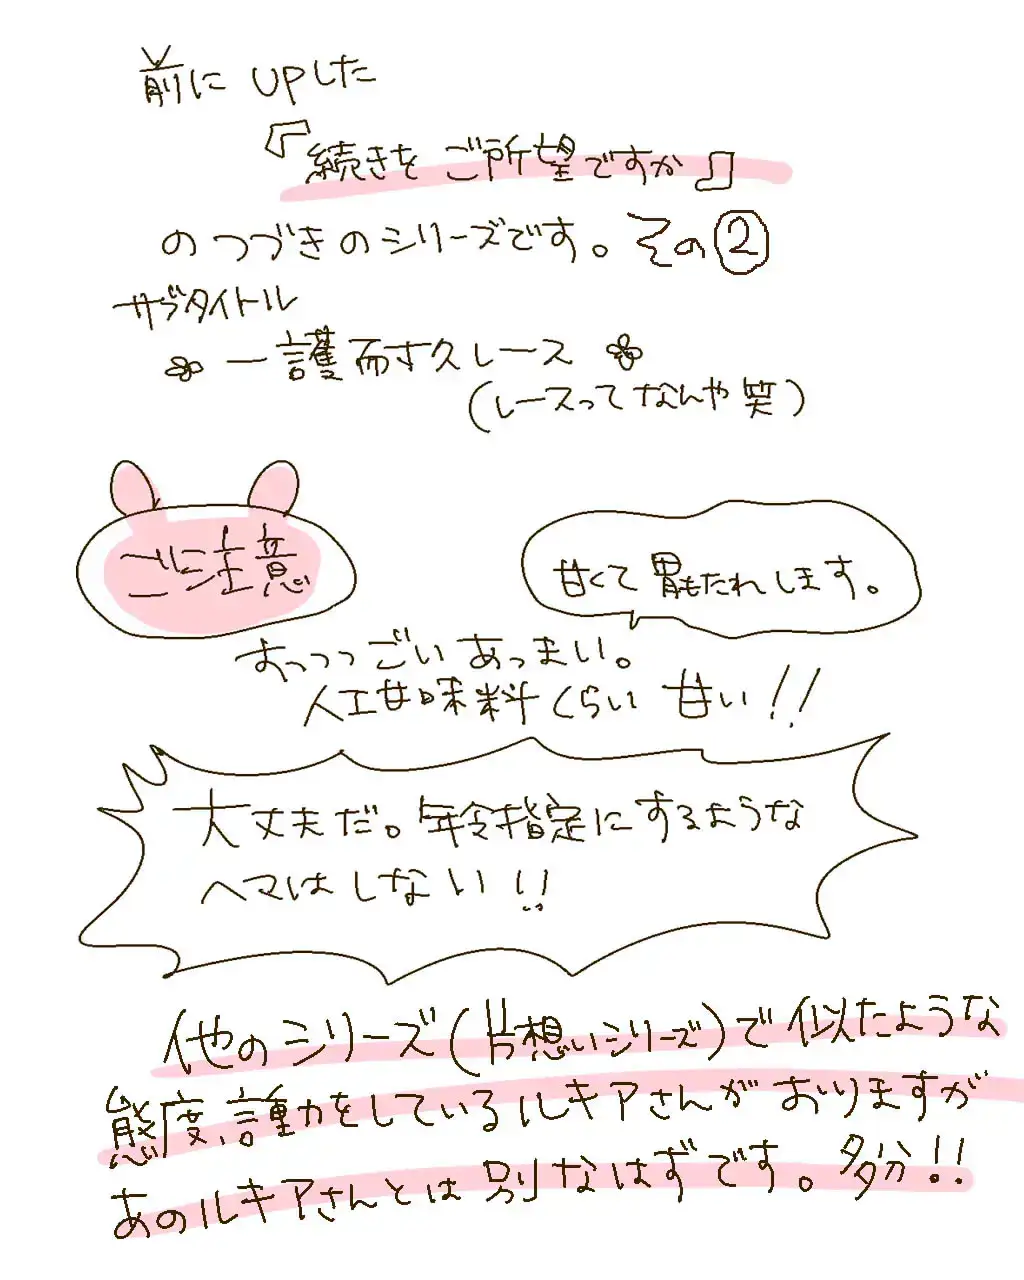 前に UPした
『続きを ご所望ですか』
のつづきのシリーズです。その②
サブタイトル
一護耐久レース
(レースってなんや笑)
ご注意
甘くて胃もたれします。
すっっっごいあっまい。
人工甘味料くらい 甘い!!
大丈夫だ。年齢指定にするような
ヘマはしない!!
他のシリーズ(片想いシリーズ)で似たような
態度、言動をしているルキアさんがおりますが
あのルキアさんとは別なはずです。多分!!